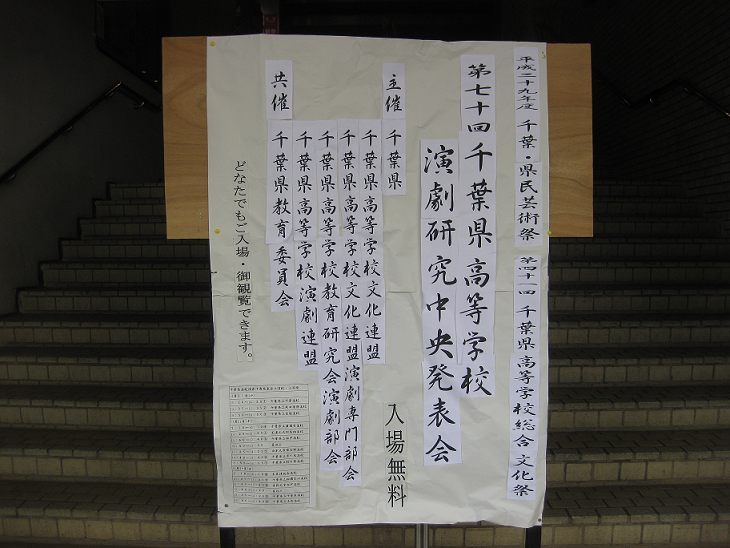 平成二十九年度 千葉・県民芸術祭 第四十一回 千葉県高等学校総合文化祭
第七十回 千葉県高等学校
演劇研究中央発表会
主催 千葉県
千葉県高等学校文化連盟
千葉県高等学校文化連盟演劇専門部会
千葉県高等学校教育研究会演劇部会
千葉県高等学校演劇連盟
共催 千葉県教育委員会
入場無料
どなたでもご入場・御観覧できます。